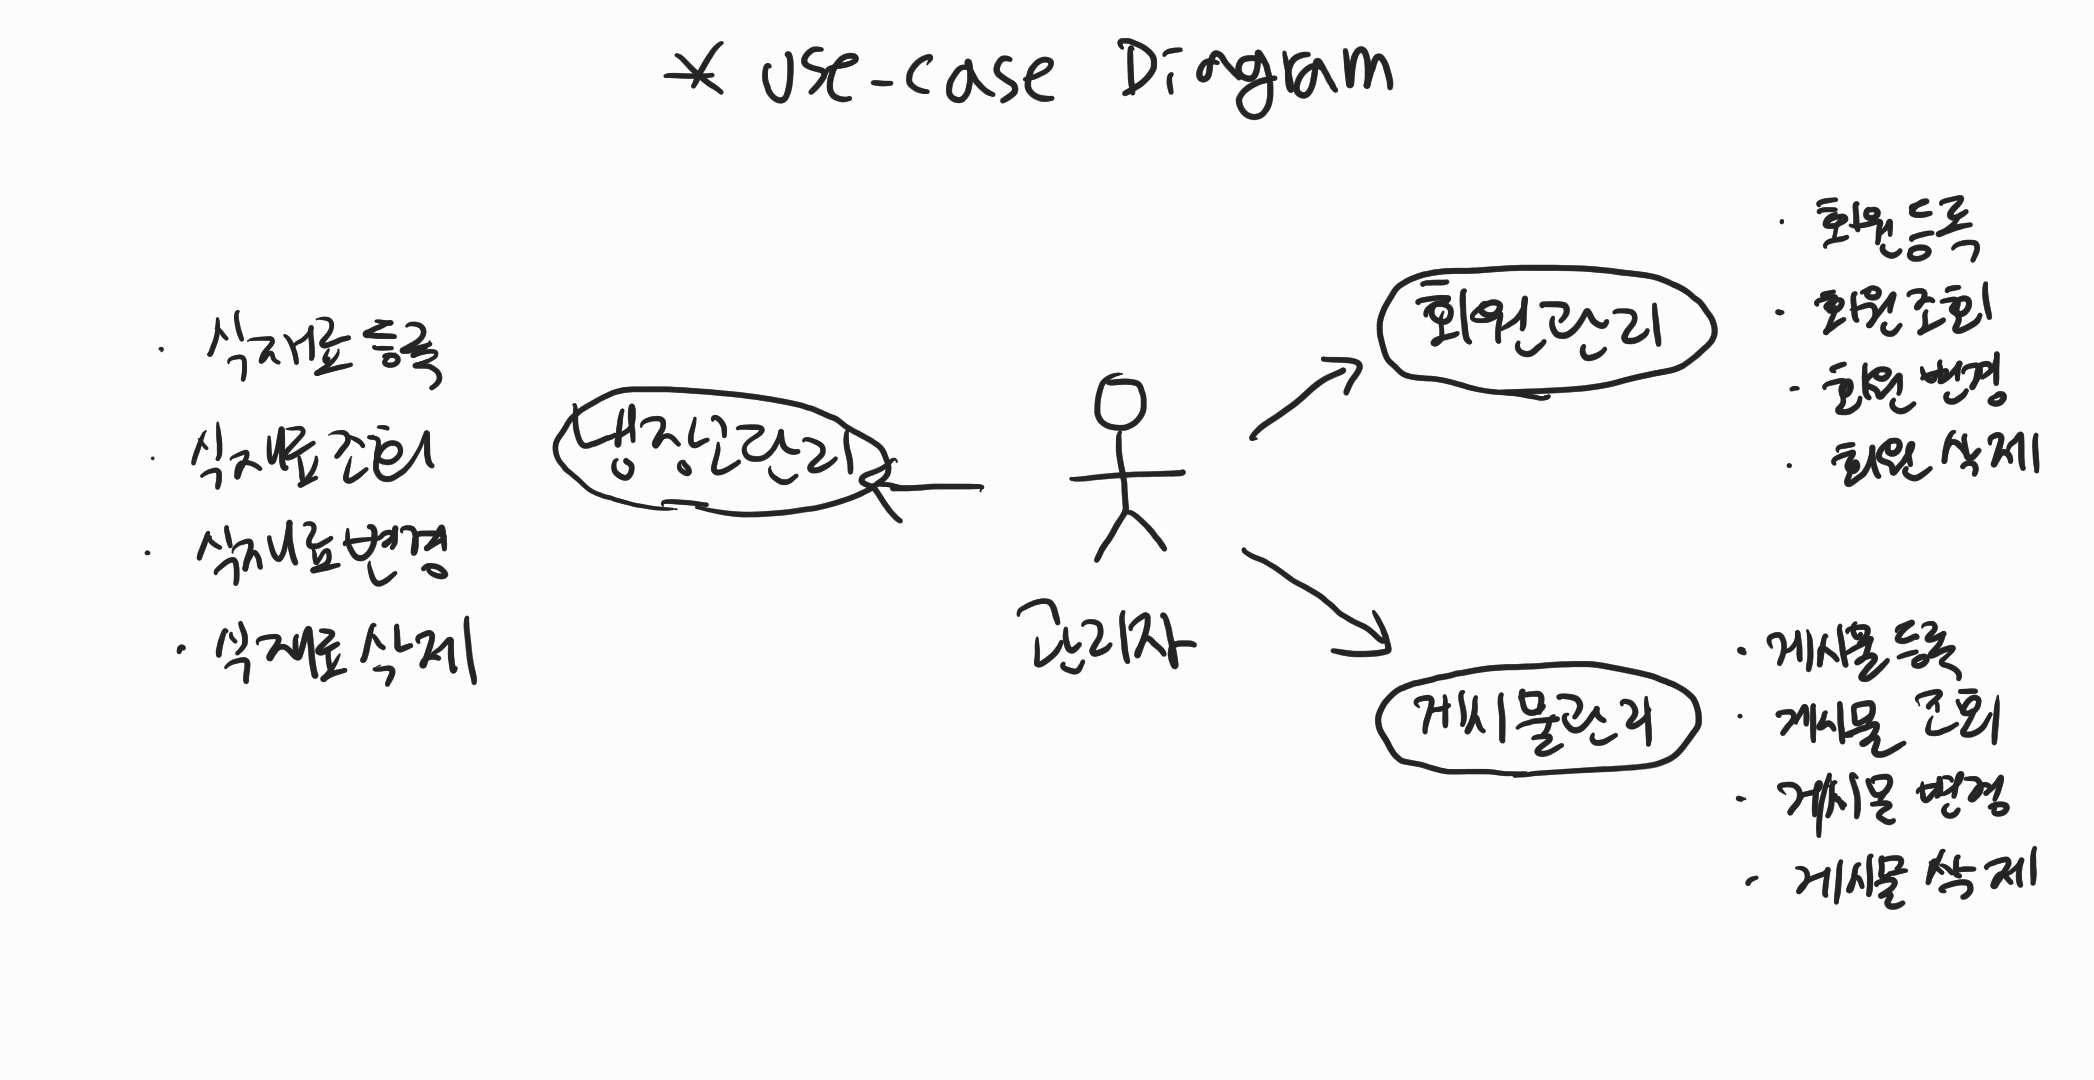 * use-case Diagram
· 식재료 등록
· 식재료 조회
· 식재료 변경
· 식재료 삭제
냉장고관리
관리자
회원관리
· 회원 등록
· 회원 조회
· 회원 변경
· 회원 삭제
게시물관리
· 게시물 등록
· 게시물 조회
· 게시물 변경
· 게시물 삭제